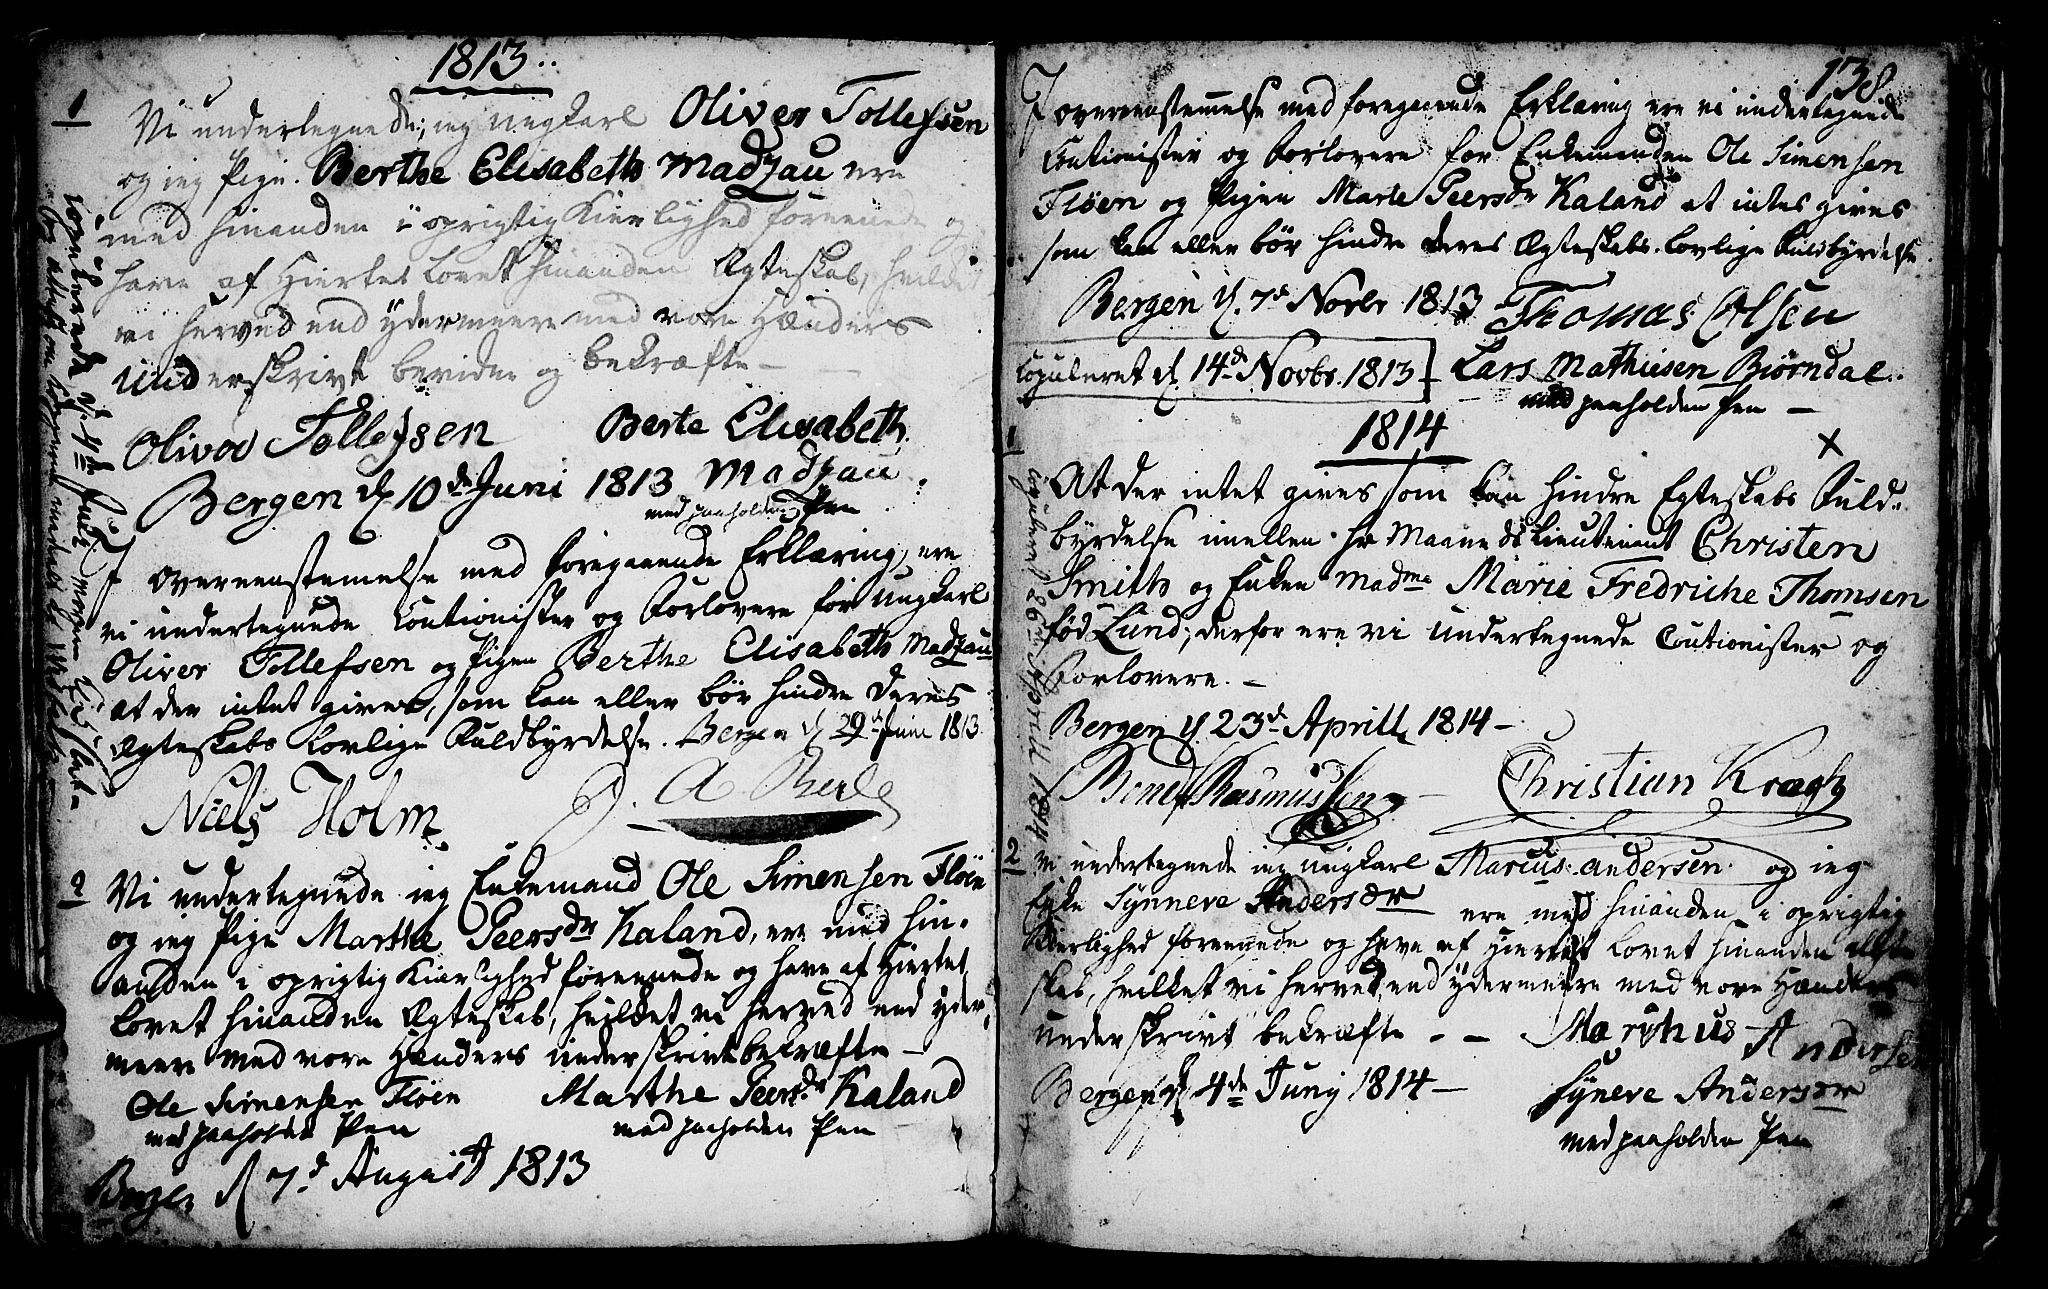 1813..
1
Vi undertegnede; ieg ungkarl Oliver Tollefsen
og ieg Pige. Berthe Elisabeth Madzau ere
med hinanden i oprigtig Kierlighed foreenede og
have af Hiertet Lovet hinanden Ægteskab, hvildet
vi herved end ydermeere med vore Hænders
Underskrivt bevidne og bekræfte —
Oliver Tollefsen Berte Elisabeth
Bergen d. 10de Juni 1813 Madzau
med paaholden Pen
I overeenstemelse med foregaaende Erklæring, ere
vi undertegnede Cautionister og Forlovere for ungkarl
Oliver Tollefsen og Pigen Berthe Elisabeth Madzau
at der intet gives, som kan eller bør hindre deres
Ægteskabs Lovlige Fuldbyrdelse. Bergen d. 29d Juni 1813
Niels Holm
copulerede d. 4de
2
Vi undertegnede ieg Enkemand Ole Simensen Fløen
og ieg Pige Marthe Peersdr Kaland, ere med hin-
anden i oprigtig Kierlighed foreenede og have af Hiertet
Lovet hinanden Ægteskab, hvildet vi herved end yder
meere med vore Hænders underskrivt bekræfte —
Ole Simensen Fløen Marthe Peersdr Kaland
med paaholden Pen med paaholden Pen
Bergen d. 7d August 1813
138.
I overeenstemmelse med foregaaende Erklæring ere vi undertegnede
Cautionister og Forlovere for Enkemanden Ole Simensen
Fløen og Pigen Marte Peersdr Kaland at intes gives
som kan eller bør hindre deres Ægteskabs Lovlige Fuldbyrdelse.
Bergen d. 7d Novbr 1813 Thomas Olsen
Copuleret d. 14de Novbr. 1813 Lars Mathiesen Biørndal..
med paaholden Pen —
1814
1
At der intet gives som kan hindre Egteskabs Fuld-
byrdelse imellem Hr Maaneds Lieutenant Christen
Smith og Enken Madme Marie Fredriche Thomsen
fød Lund, derfor ere vi undertegnede Cautionister og
Forlovere. —
Bergen d 23d Aprill 1814 —
Rasmussen Christian Kragh
copuleret d 26 Aprill 1814
2
vi undertegnede ieg ungkarl Marcus andersen og ieg
Enke Synneve Andersdr ere med hinanden i oprigtig
Kierlighed foreenede og have af Hiertet Lovet hinanden Ægte
skab, hvilket vi herved end ydermeere med vore Hænders
underskrivt bekræfte - — Marthus Andersen
Bergen d. 4de Juny 1814 — Syneve Andersdr
med paaholden Pen